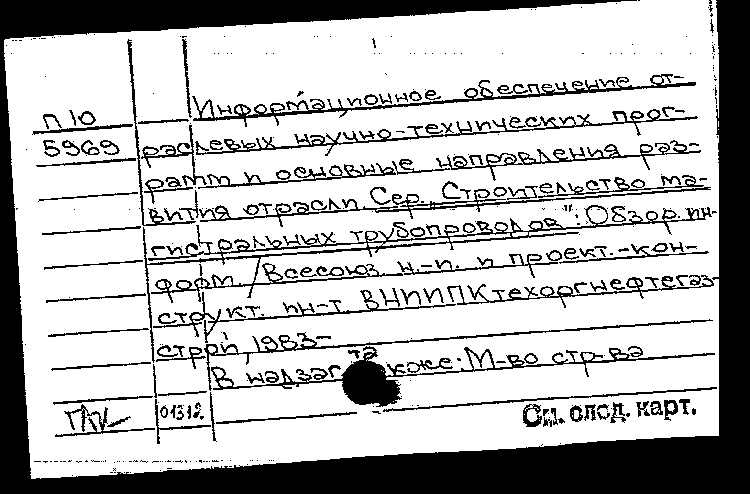 Информационное обеспечение от-
П 10
5969 раслевых научно-технических прог-
рамм и основные направления раз-
вития отрасли. Сер. „Строительство ма-
гистральных трубопроводов": Обзор. ин-
форм. / Всесоюз. н.-и. и проект.-кон-
структ. ин-т. ВНИИПКтехоргнефтегаз-
строй, 1983-
В надзаг. также: М-во стр-ва
01312 См. след. карт.